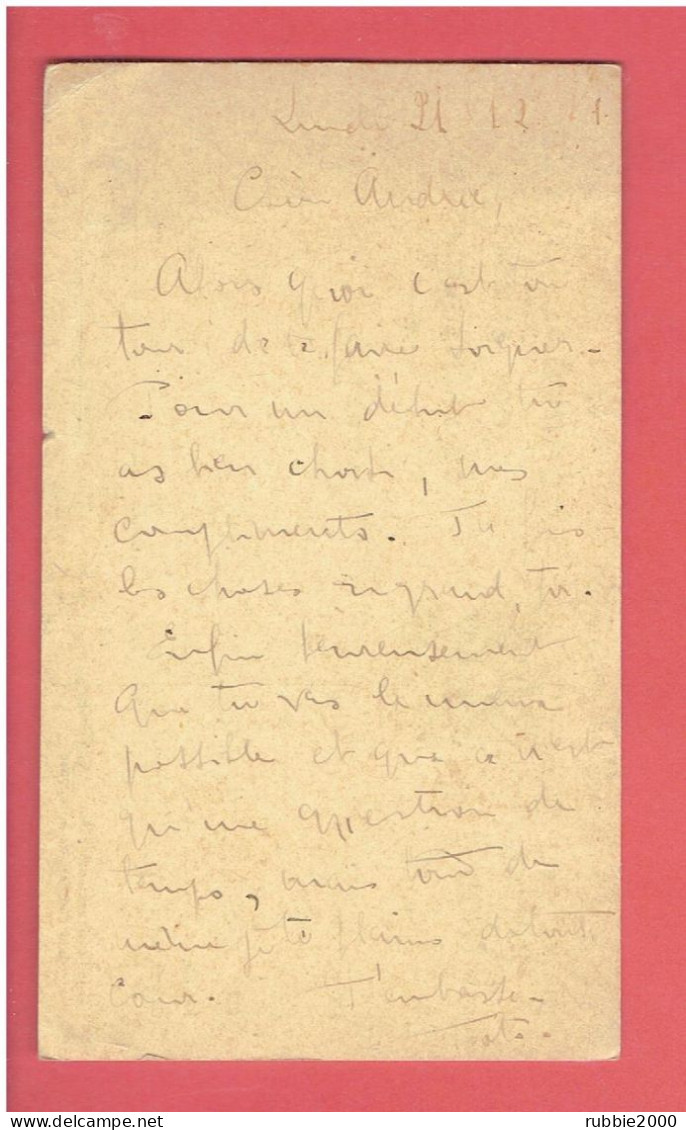 Lundi 21 12
Andrée,
Alors quoi c'est ton
tour de te faire soigner.
Pour un début tu
as bien choisi, mes
compliments. Tu fais
les choses en grand, toi.
Enfin heureusement
que tu vas le mieux
possible et que ce n'est
qu'une question de
temps, mais tout de
même je te plains de tout
cœur. T'embrasse
rubbie2000